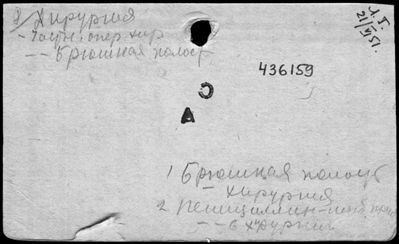 Хирургия
- Частн. опер хир
- - Брюшная полост
Л. Г.
21/VI 51.
436159
С
А
1 Брюшная полость
Хирургия
2 Пенициллин-
- - в хирургии